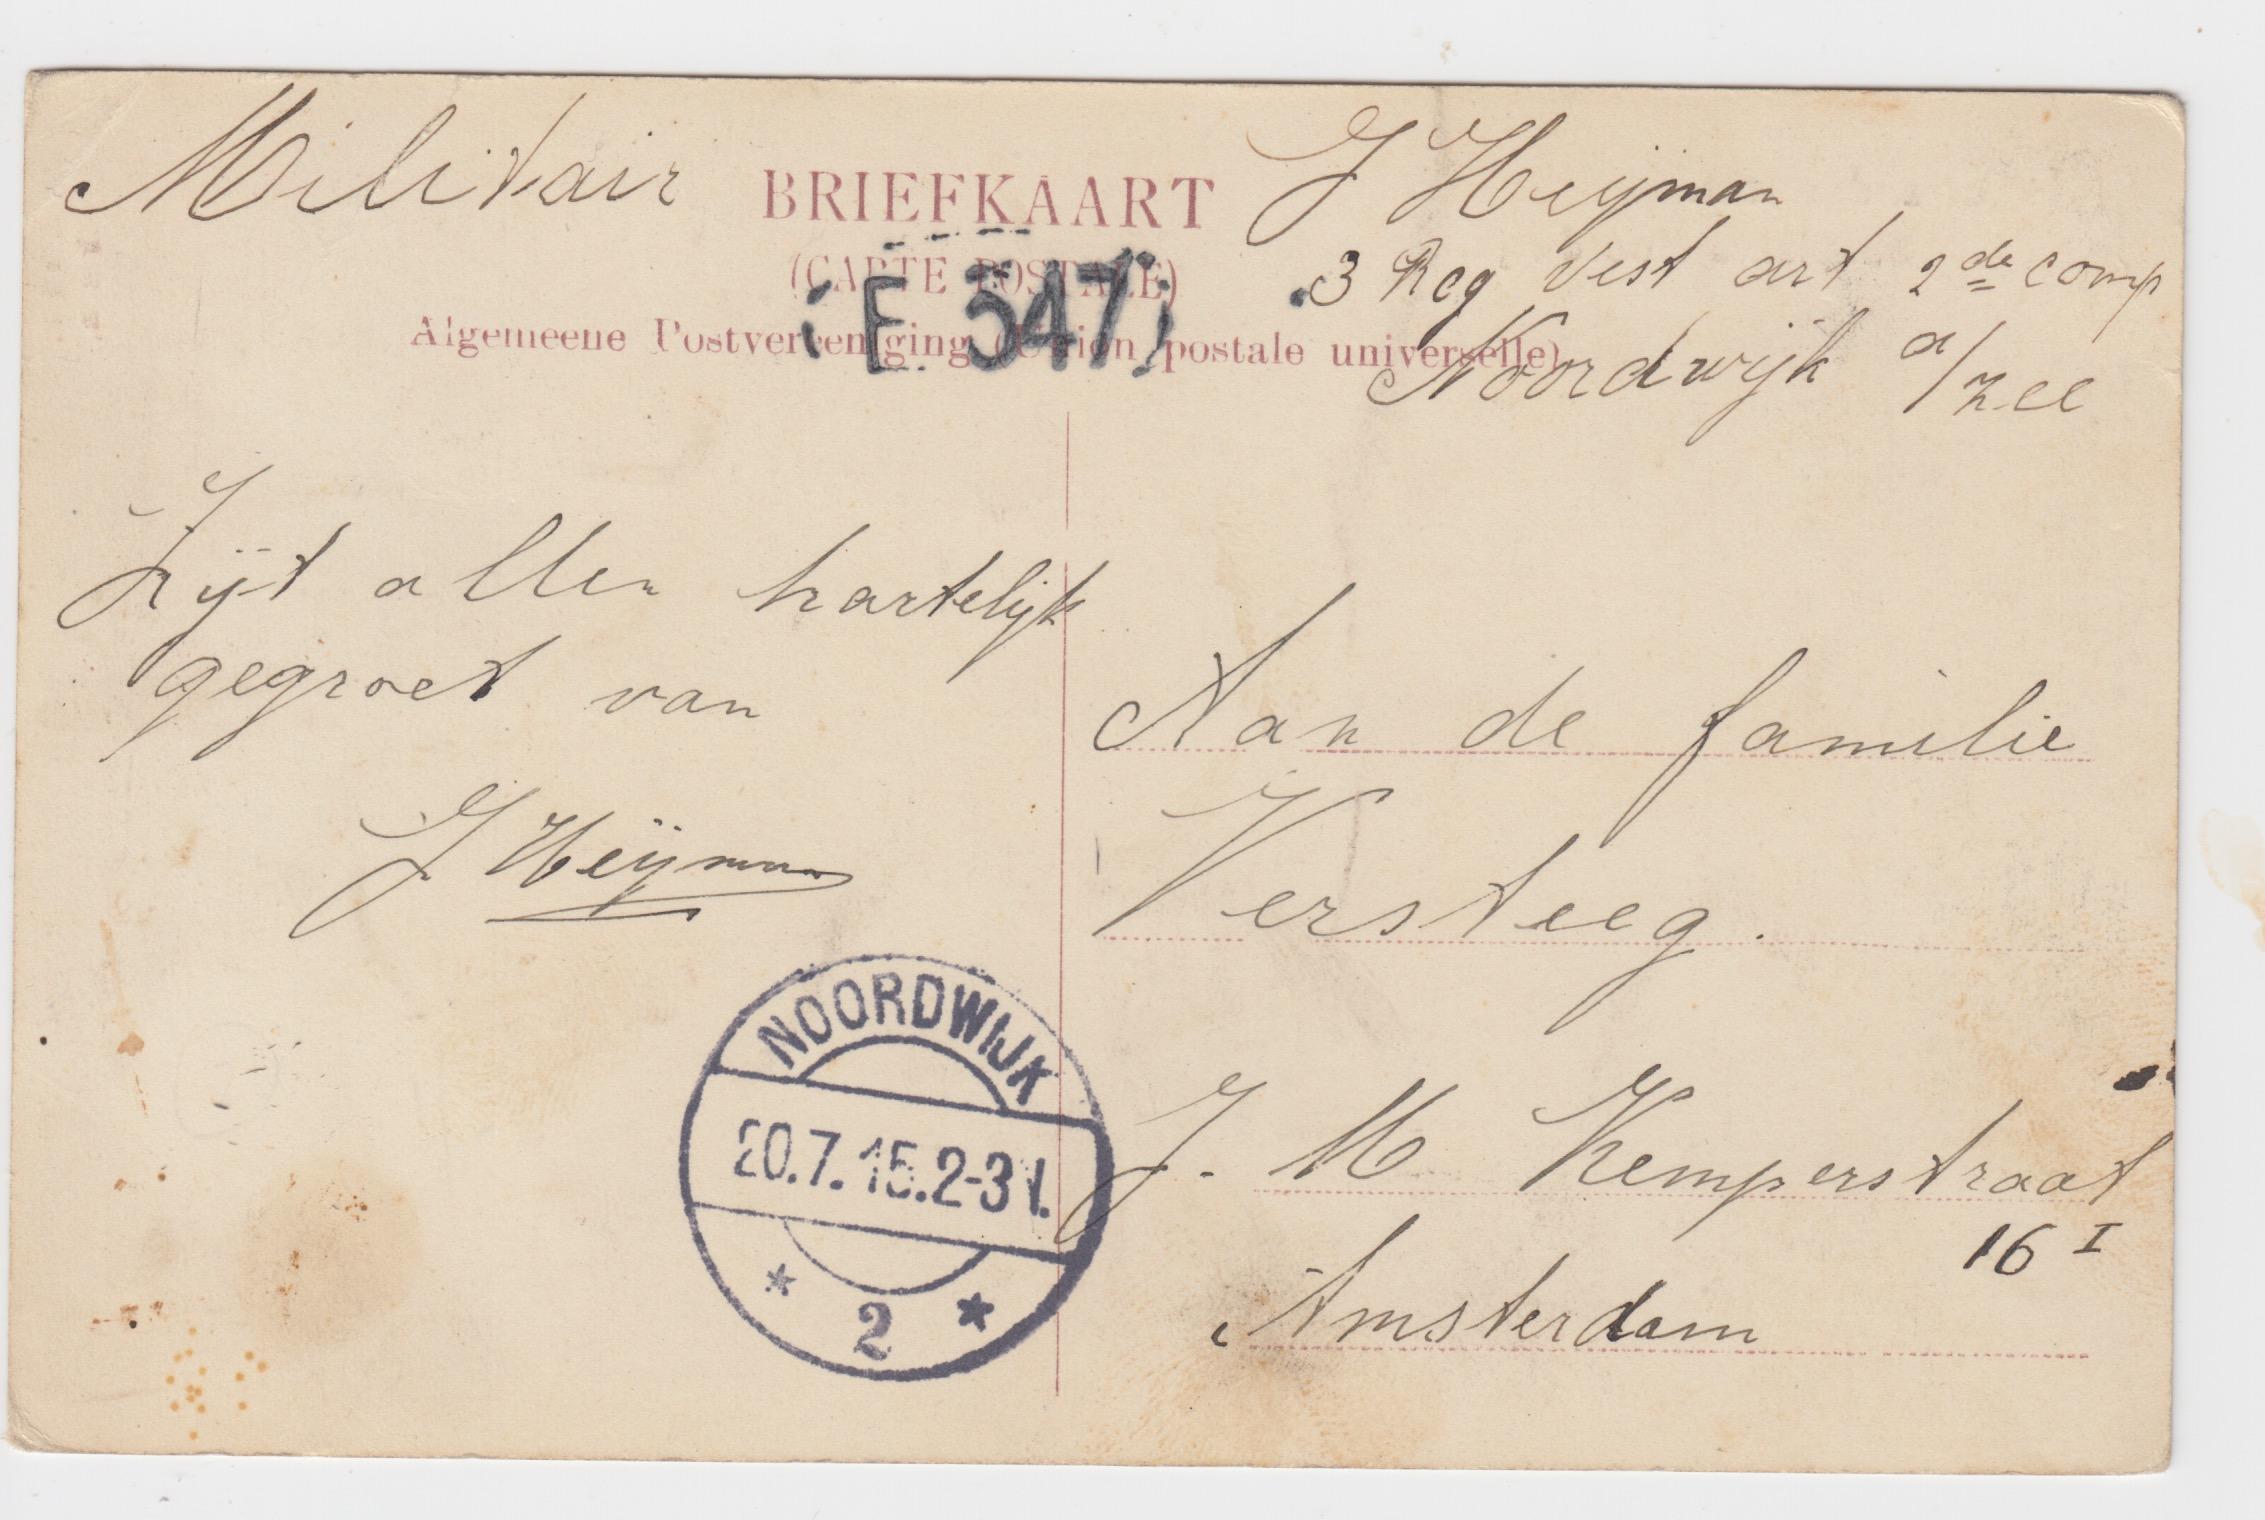 Militair
BRIEFKAART
(CARTE POSTALE)
Algemeene Postvereeniging (Union postale universelle)
F 547
J Heijman
3 Reg Vest art 2de comp
Noordwijk a/zee
Zijt allen hartelijk
gegroet van
J Heijman
Aan de familie
Versteeg.
J. M Kemperstraat
16 I
Amsterdam
NOORDWIJK
20.7.15.2-3 N.
* 2 *